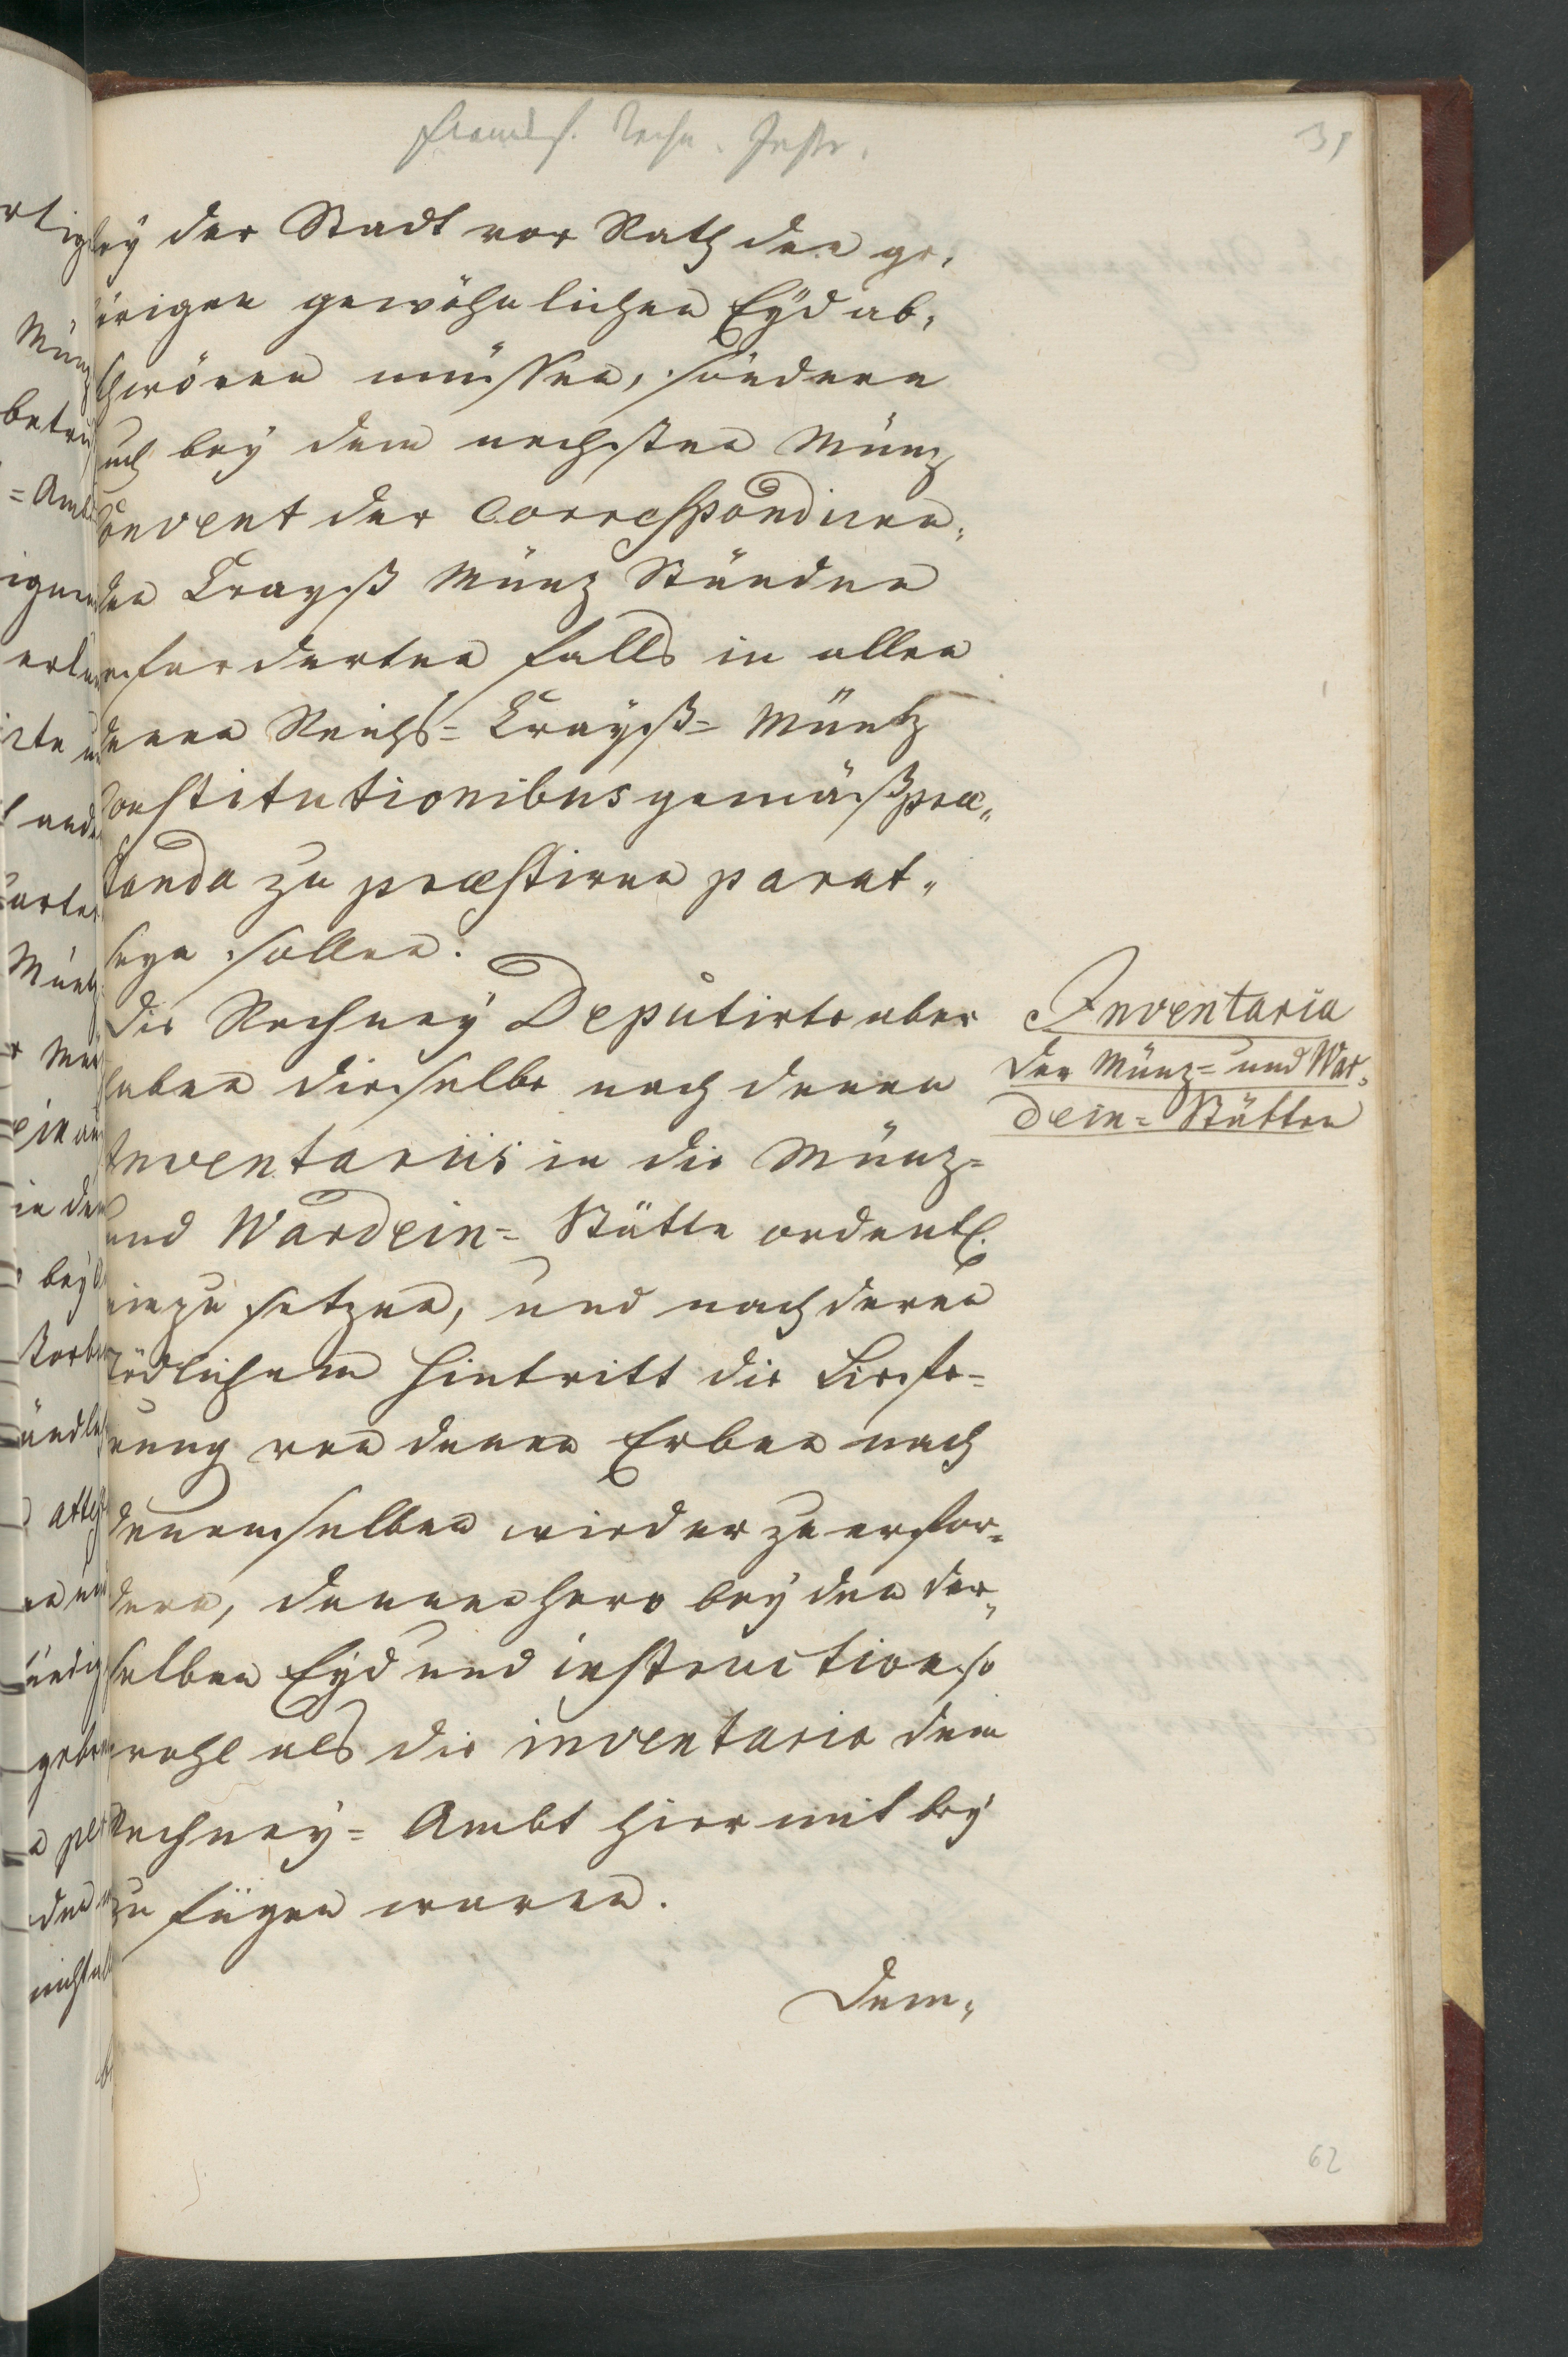 31
bey der Stadt vor Rath den ge,
hörigen gewöhnlichen Eyd ab,
schwören müssen, sondern
auch bey dem nechsten Müntz
Convent der Correspondiren,
den Crayß Müntz Ständen
erforderten falls in allen
denen Reichs= Crayß= Müntz
Constitutionibus gemäß præ„
standa zu præstiren parat„
seyn sollen.
Die Rechney Deputirte aber
haben dieselbe nach denen
Inventariis in die Müntz=
und Wardein= Stätte ordentl.
einzusetzen, und nach deren
tödlichem Hintritt die Liefe=
rung von denen Erben nach
denenselben wieder zu erfor=
dern, dannenhero bey den der„
selben Eyd und instruction so
wohl als die inventaria dem
Rechney= Ambt hiermit bey
zu fügen waren.
Dem„
Inventaria
Der Müntz= und War„
dein= Stätten
62